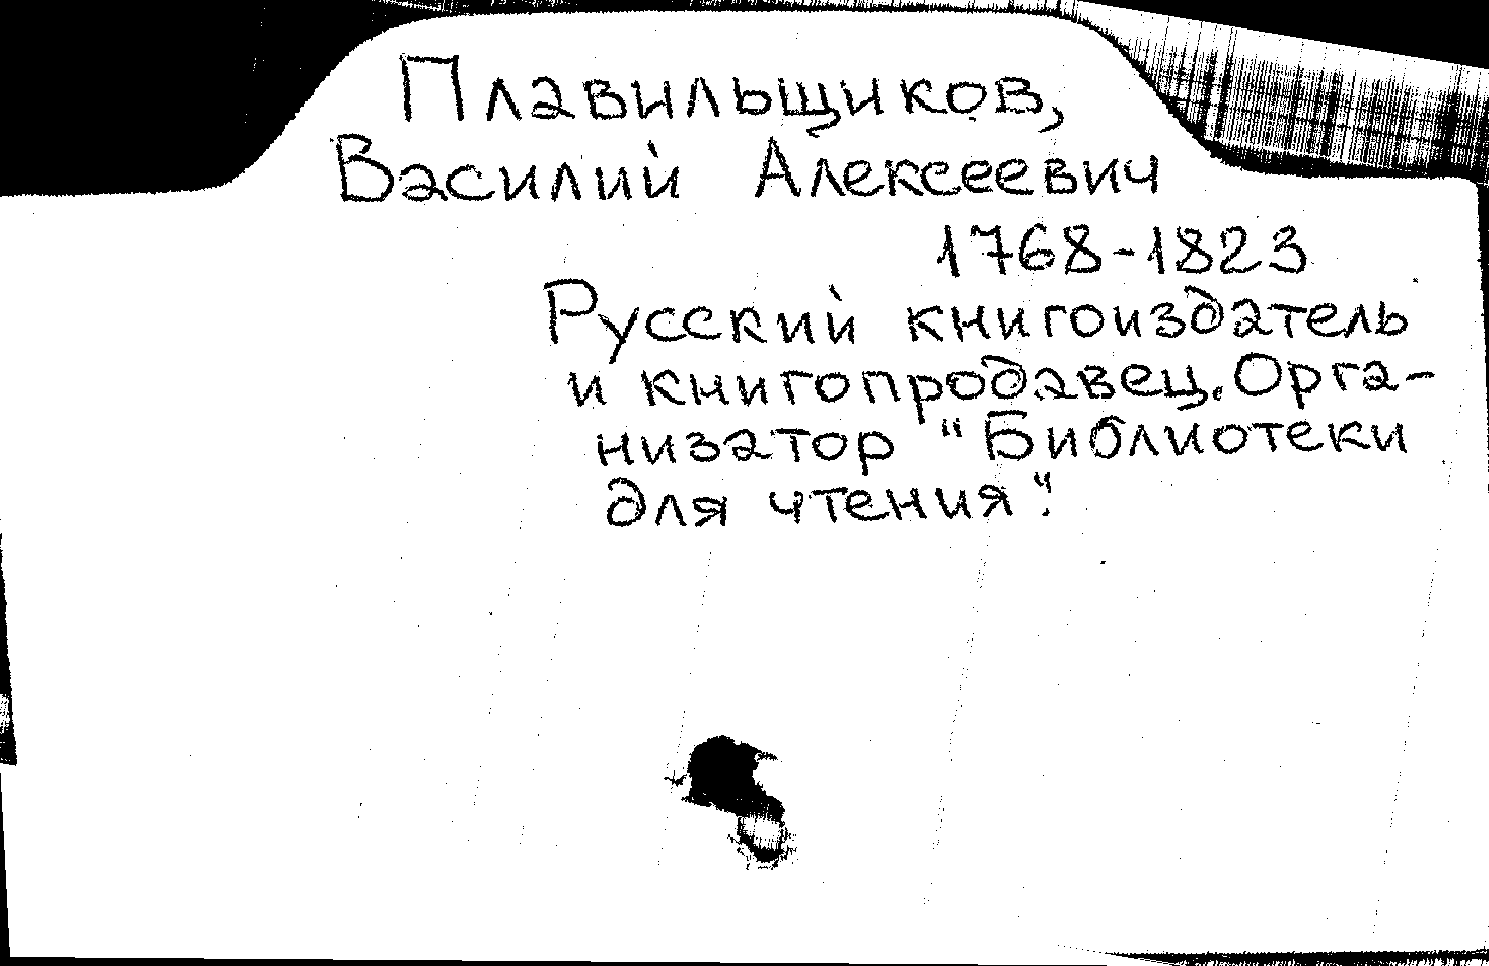 Плавильщиков,
Василий Алексеевич
1768-1823
Русский книгоиздатель
и книгопродавец. Орга-
низатор "Библиотеки
для чтения".